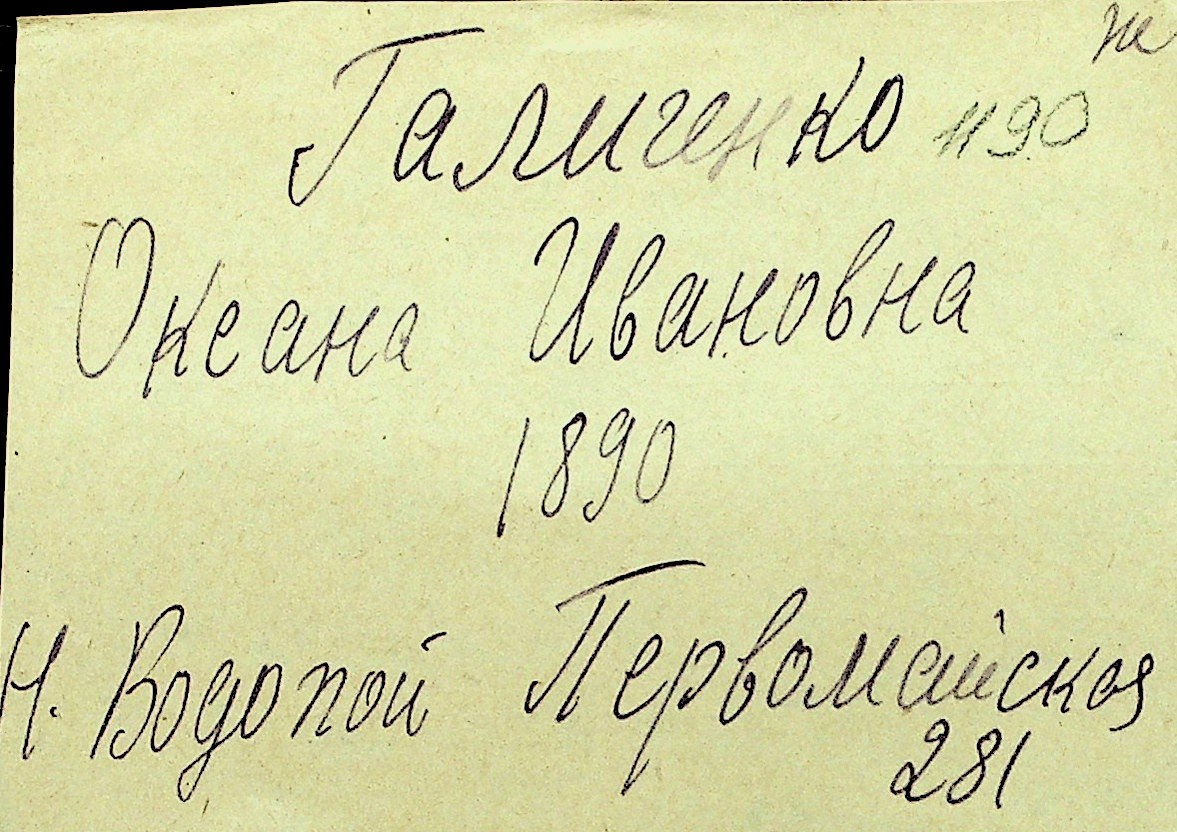 ж
Галиченко 1190
Оксана Ивановна
1890
Н. Водопой Первомайская
281